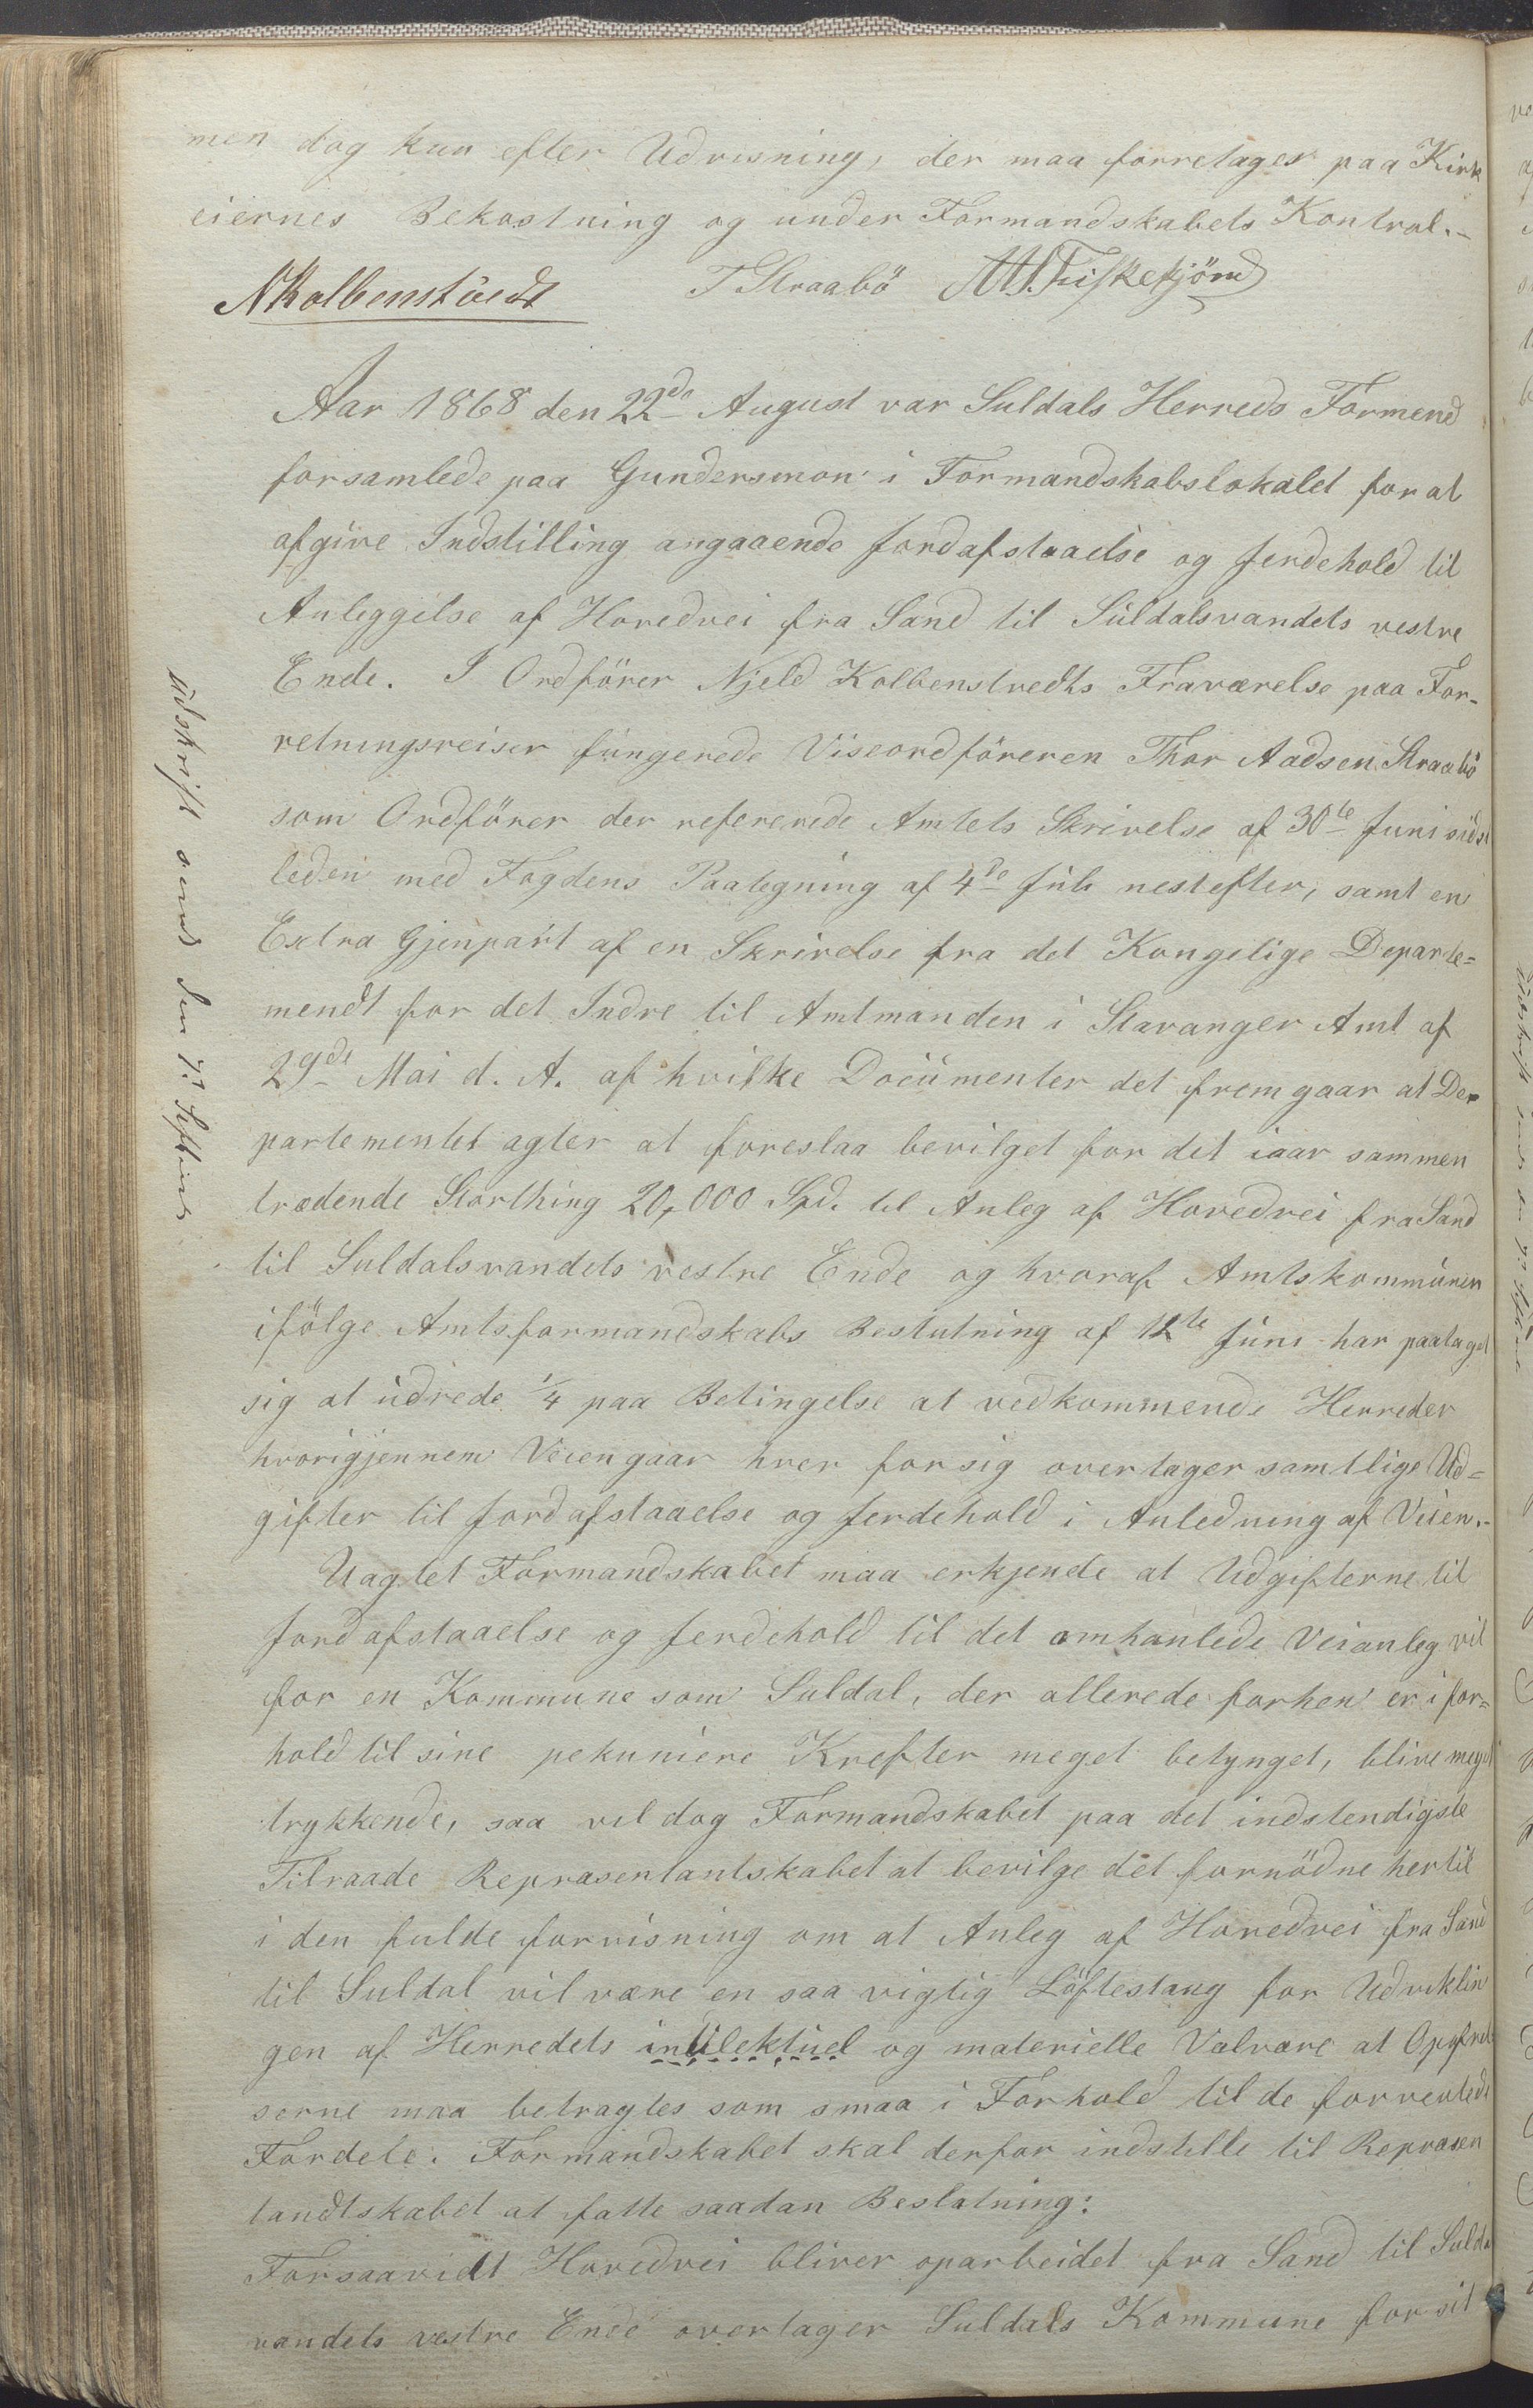 men dog kun efter Udvisning, der maa forretages paa Kirk
eiernes Bekostning og under Formandskabets Kontrol.-
NKolbenstvedt T Straabö
Aar 1868 den 22de August var Suldals Herreds Formend
forsamlede paa Gundersmon i Formandskabslokalet for at
afgive Indstilling angaaende Jordafstaaelse og Jerdehold til
Anleggelse af Hovedvei fra Sand til Suldalsvandets vestre
Ende. I Ordförer Njeld Kolbenstvedts Fraværelse paa For-
retningsreiser fungerede Viseordföreren Thor Aadsen Straabö
som Ordförer der refererede Amtets Skrivelse af 30te Juni sidst
leden med Fogdens Paategning af 4de Juli nestefter, samt en
Extra Gjenpart af en Skrivelse fra det Kongelige Departe=
mendt for det Indre til Amtmanden i Stavanger Amt af
29de Mai d. A. af hvilke Documenter det fremgaar at De-
partementet agter at foreslaa bevilget for det iaar sammen
trædende Storthing 20,000 Spd. til Anleg af Hovedvei fra Sand
til Suldalsvandets vestre Ende og hvoraf Amtskommunen
ifölge Amtsformandskabs Beslutning af 12te Juni har paataget
sig at udrede 1/4 paa Betingelse at vedkommende Herreder
hvorigjennem Veien gaar hver for sig overtager samtlige Ud=
gifter til Jordafstaaelse og Jerdehold i Anledning af Veien.-
Uagtet Formandskabet maa erkjende at Udgifterne til
Jordafstaaelse og Jerdehold til det omhanlede Veianleg vil
for en Kommune som Suldal, der allerede forhen er i for=
hold til sine pekuniere Krefter meget betynget, blive meget
trykkende, saa vil dog Formandskabet paa det indstendigste
Tilraade Repræsentantskabet at bevilge det fornödne hertil
i den fulde forvisning om at Anleg af Hovedvei fra Sand
til Suldal vil være en saa vigtig Löftestang for Udviklin
gen af Herredets intilektuel og materielle Velvære at Opofrel
serne maa betragtes som smaa i Forhold til de forventede
Fordele. Formandskabet skal derfor indstille til Repræsen
tandtskabet at fatte saadan Beslutning:
Forsaavidt Hovedvei bliver oparbeidet fra Sand til Suldal
vandets vestre Ende overtager Suldals Kommune for sit
Udskrift sendt den 7de Septemb